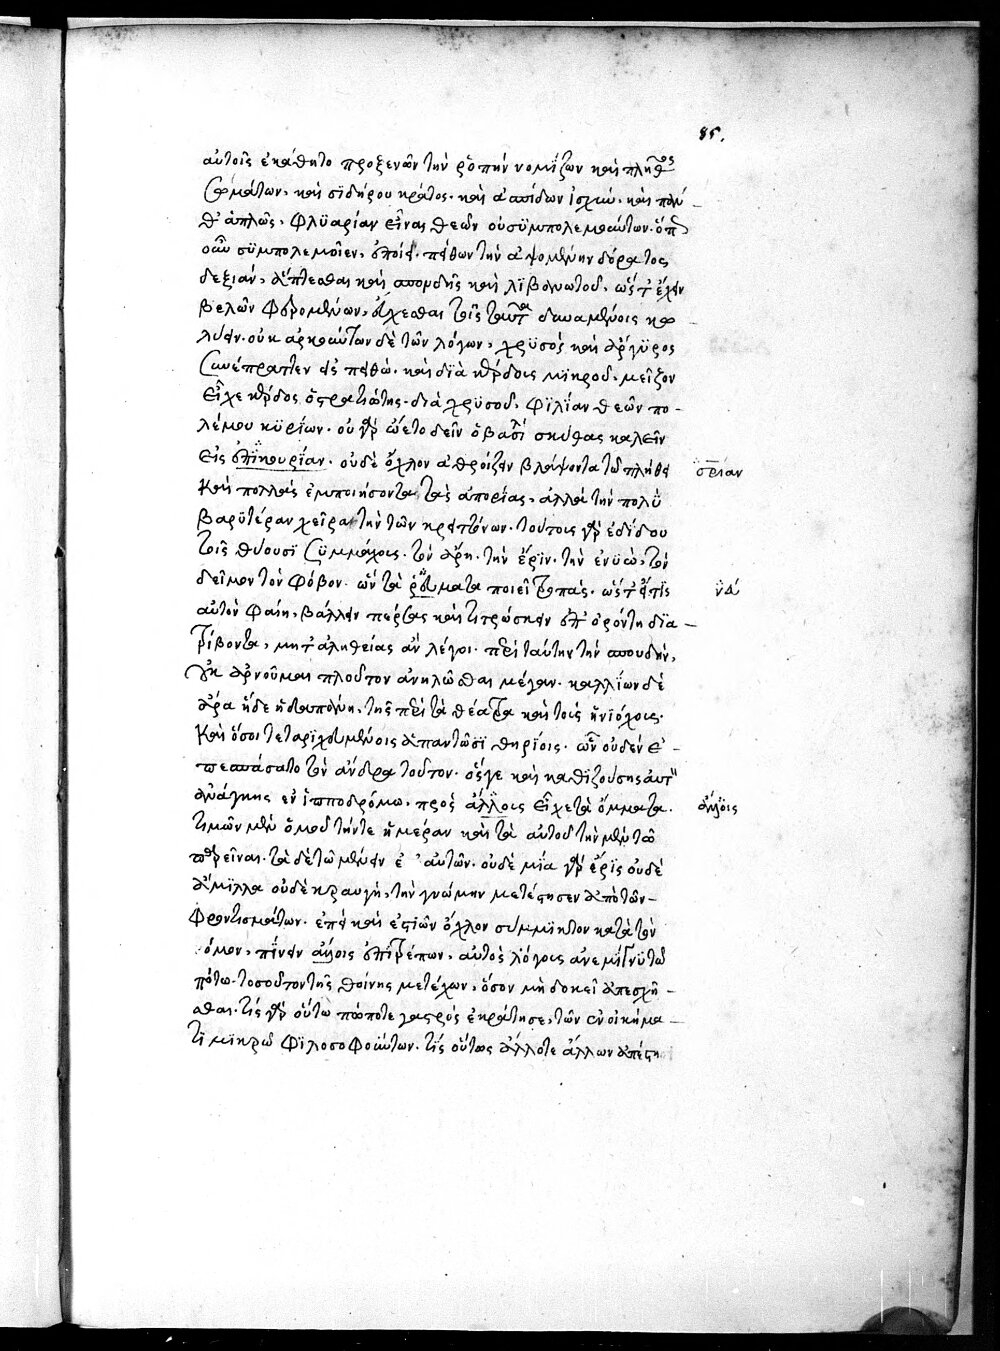 85.
αὐτοῖς ἐκάθητο προξενῶν τὴν ῥοπὴν νομίζων καὶ πλῆθος
σωμάτων, καὶ σιδήρου κράτος. καὶ ἀσπίδων ἰσχὺν. καὶ πάν
θ' ἁπλῶς, φλυαρίαν εἶναι θεῶν οὐ συμπολεμούντων. ὅπ
οὖν συμπολεμοῖεν, ἐποίει. πείθων τὴν ἁψομένην δόρατος
δεξιὰν, ἅπτεσθαι καὶ σπονδῆς καὶ λιβανωτοῦ, ὥστ' ἔχειν
βελῶν φερομένων, εὔχεσθαι τοῖς ταῦτα δυναμένοις κω
λύειν. οὐκ ἀρκούντων δὲ τῶν λόγων, χρυσὸς καὶ ἄργυρος
συνέπραττεν εἰς πειθώ. καὶ διὰ κέρδους μικροῦ, μεῖζον
εἶχε κέρδος ὁ στρατιώτης. διὰ χρυσοῦ, φιλίαν θεῶν πο-
λέμου κυρίων. οὐ γὰρ ᾤετο δεῖν ὁ βασι σκύθας καλεῖν
εἰς ἐπικουρίαν. οὐδὲ ὄχλον ἀθροίζειν βλάψοντα τῷ πλήθει
καὶ πολλὰς ἐμποιήσοντα τὰς ἀπορίας, ἀλλὰ τὴν πολὺ
βαρυτέραν χεῖρα τὴν τῶν κρειττόνων. τούτους γὰρ ἐδίδου
τοῖς θύουσι συμμάχους. τὸν ἄρη. τὴν ἔριν. τὴν ἐνυὼ, τὸν
δεῖμον τὸν φόβον. ὧν τὰ ῥεύματα ποιεῖ τροπάς. ὥστ' εἴ τις
αὐτὸν φαίη, βάλλειν πέρσας καὶ τιτρώσκειν ἐπ' ὀρόντῃ δια-
τρίβοντα, μετ' ἀληθείας ἂν λέγοι. περὶ ταύτην τὴν σπουδὴν,
οὐκ ἀρνοῦμαι πλοῦτον ἀνηλῶσθαι μέγαν. καλλίων δὲ
ἄρα ἥδε ἡ δαπάνη, τῆς περὶ τὰ θέατρα καὶ τοὺς ἡνιόχους.
καὶ ὅσοι τεταριχευμένοις ἀπαντῶσι θηρίοις. ὧν οὐδὲν ἐ-
πεσπάσατο τὸν ἄνδρα τοῦτον. ὅς γε καὶ καθιζούσης αὐτὸν
ἀνάγκης ἐν ἱπποδρόμῳ, πρὸς ἄλλοις εἶχε τὰ ὄμματα.
τιμῶν μὲν ὁμοῦ τήν τε ἡμέραν καὶ τὰ αὐτοῦ τὴν μὲν τῷ
παρεῖναι. τὰ δὲ τῷ μένειν ἐ' αὐτῶν. οὐδὲ μία γὰρ ἔρις οὐδὲ
ἅμιλλα οὐδὲ κραυγὴ, τὴν γνώμην μετέστησεν ἀπὸ τῶν-
φροντισμάτων. ἐπεὶ καὶ ἑστιῶν ὄχλον σύμμικτον κατὰ τὸν
όμον, πίνειν ἄλλοις ἐπιτρέπων, αὐτὸς λόγους ἀνεμίγνυ τῷ
πότῳ. τοσοῦτον τῆς θοίνης μετέχων, ὅσον μὴ δοκεῖ ἀπεσχῆ-
σθαι. τίς γὰρ οὕτω πώποτε γαστρὸς ἐκράτησε, τῶν ἐν οἰκήμα-
τι μικρῷ φιλοσοφούντων. τίς οὕτως ἄλλοτε ἄλλων ἀπέστη
ἄλλοις